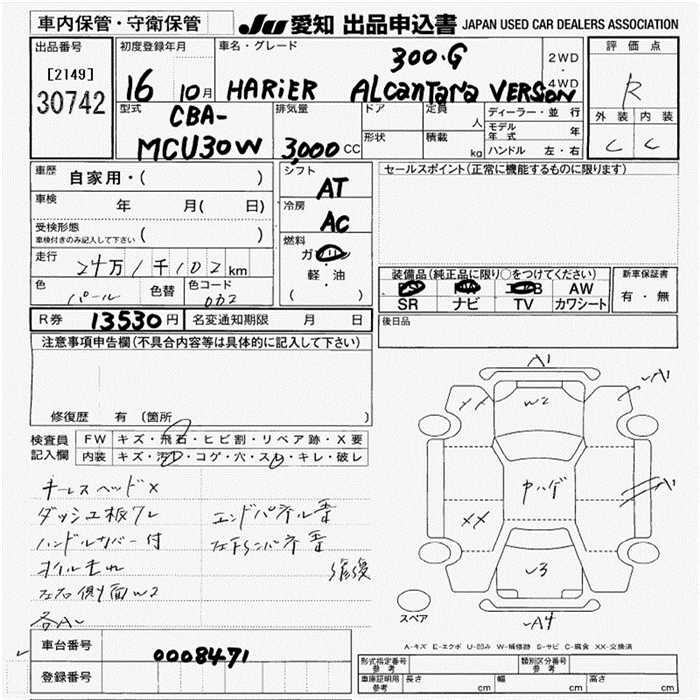 車内保管・守衛保管
JU 愛知 出品申込書 JAPAN USED CAR DEALERS ASSOCIATION
出品番号
[2149]
30742
初度登録年月
16 10月
車名・グレード
300・G
HARiER ALcantara VERSON
2WD
・
4WD
評価点
R
外装 内装
C C
型式
CBA-
MCU30W
排気量
3,000 CC
ドア
定員
人
形状
積載
kg
ディーラー・並行
モデル年式 年
ハンドル 左・右
車歴
自家用・( )
車検
年 月( 日)
受検形態
車検付きのみ記入して下さい ( )
走行
24万1千102km
色
パール
色替
色コード
082
シフト
AT
冷房
AC
燃料
ガソリン
軽・油
( )
セールスポイント(正常に機能するものに限ります)
装備品(純正品に限り○をつけてください)
AW
SR ナビ TV カワシート
新車保証書
有・無
R券 13530円
名変通知期限 月 日
後日品
注意事項申告欄(不具合内容等は具体的に記入して下さい)
修復歴 有(箇所 )
検査員
記入欄
FW キズ・飛石・ヒビ割・リペア跡・X要
内装 キズ・汚れ・コゲ・穴・スレ・キレ・破レ
キーレスヘッド×
ダッシュ板ワレ
ハンドルカバー付
オイルもれ
左右側面W2
各A~
エンドパネル香
修復
A1
XX
W2
A1
ヤハゲ
A1
XX
~3
スペア
~A4
A-キズ E-エクボ U-凹み W-補修跡 S-サビ C-腐食 XX-交換済
車台番号
0008471
登録番号
形式指定番号
参考
類別区分番号
参考
車庫証明用
参考
長さ cm
幅 cm
高さ cm